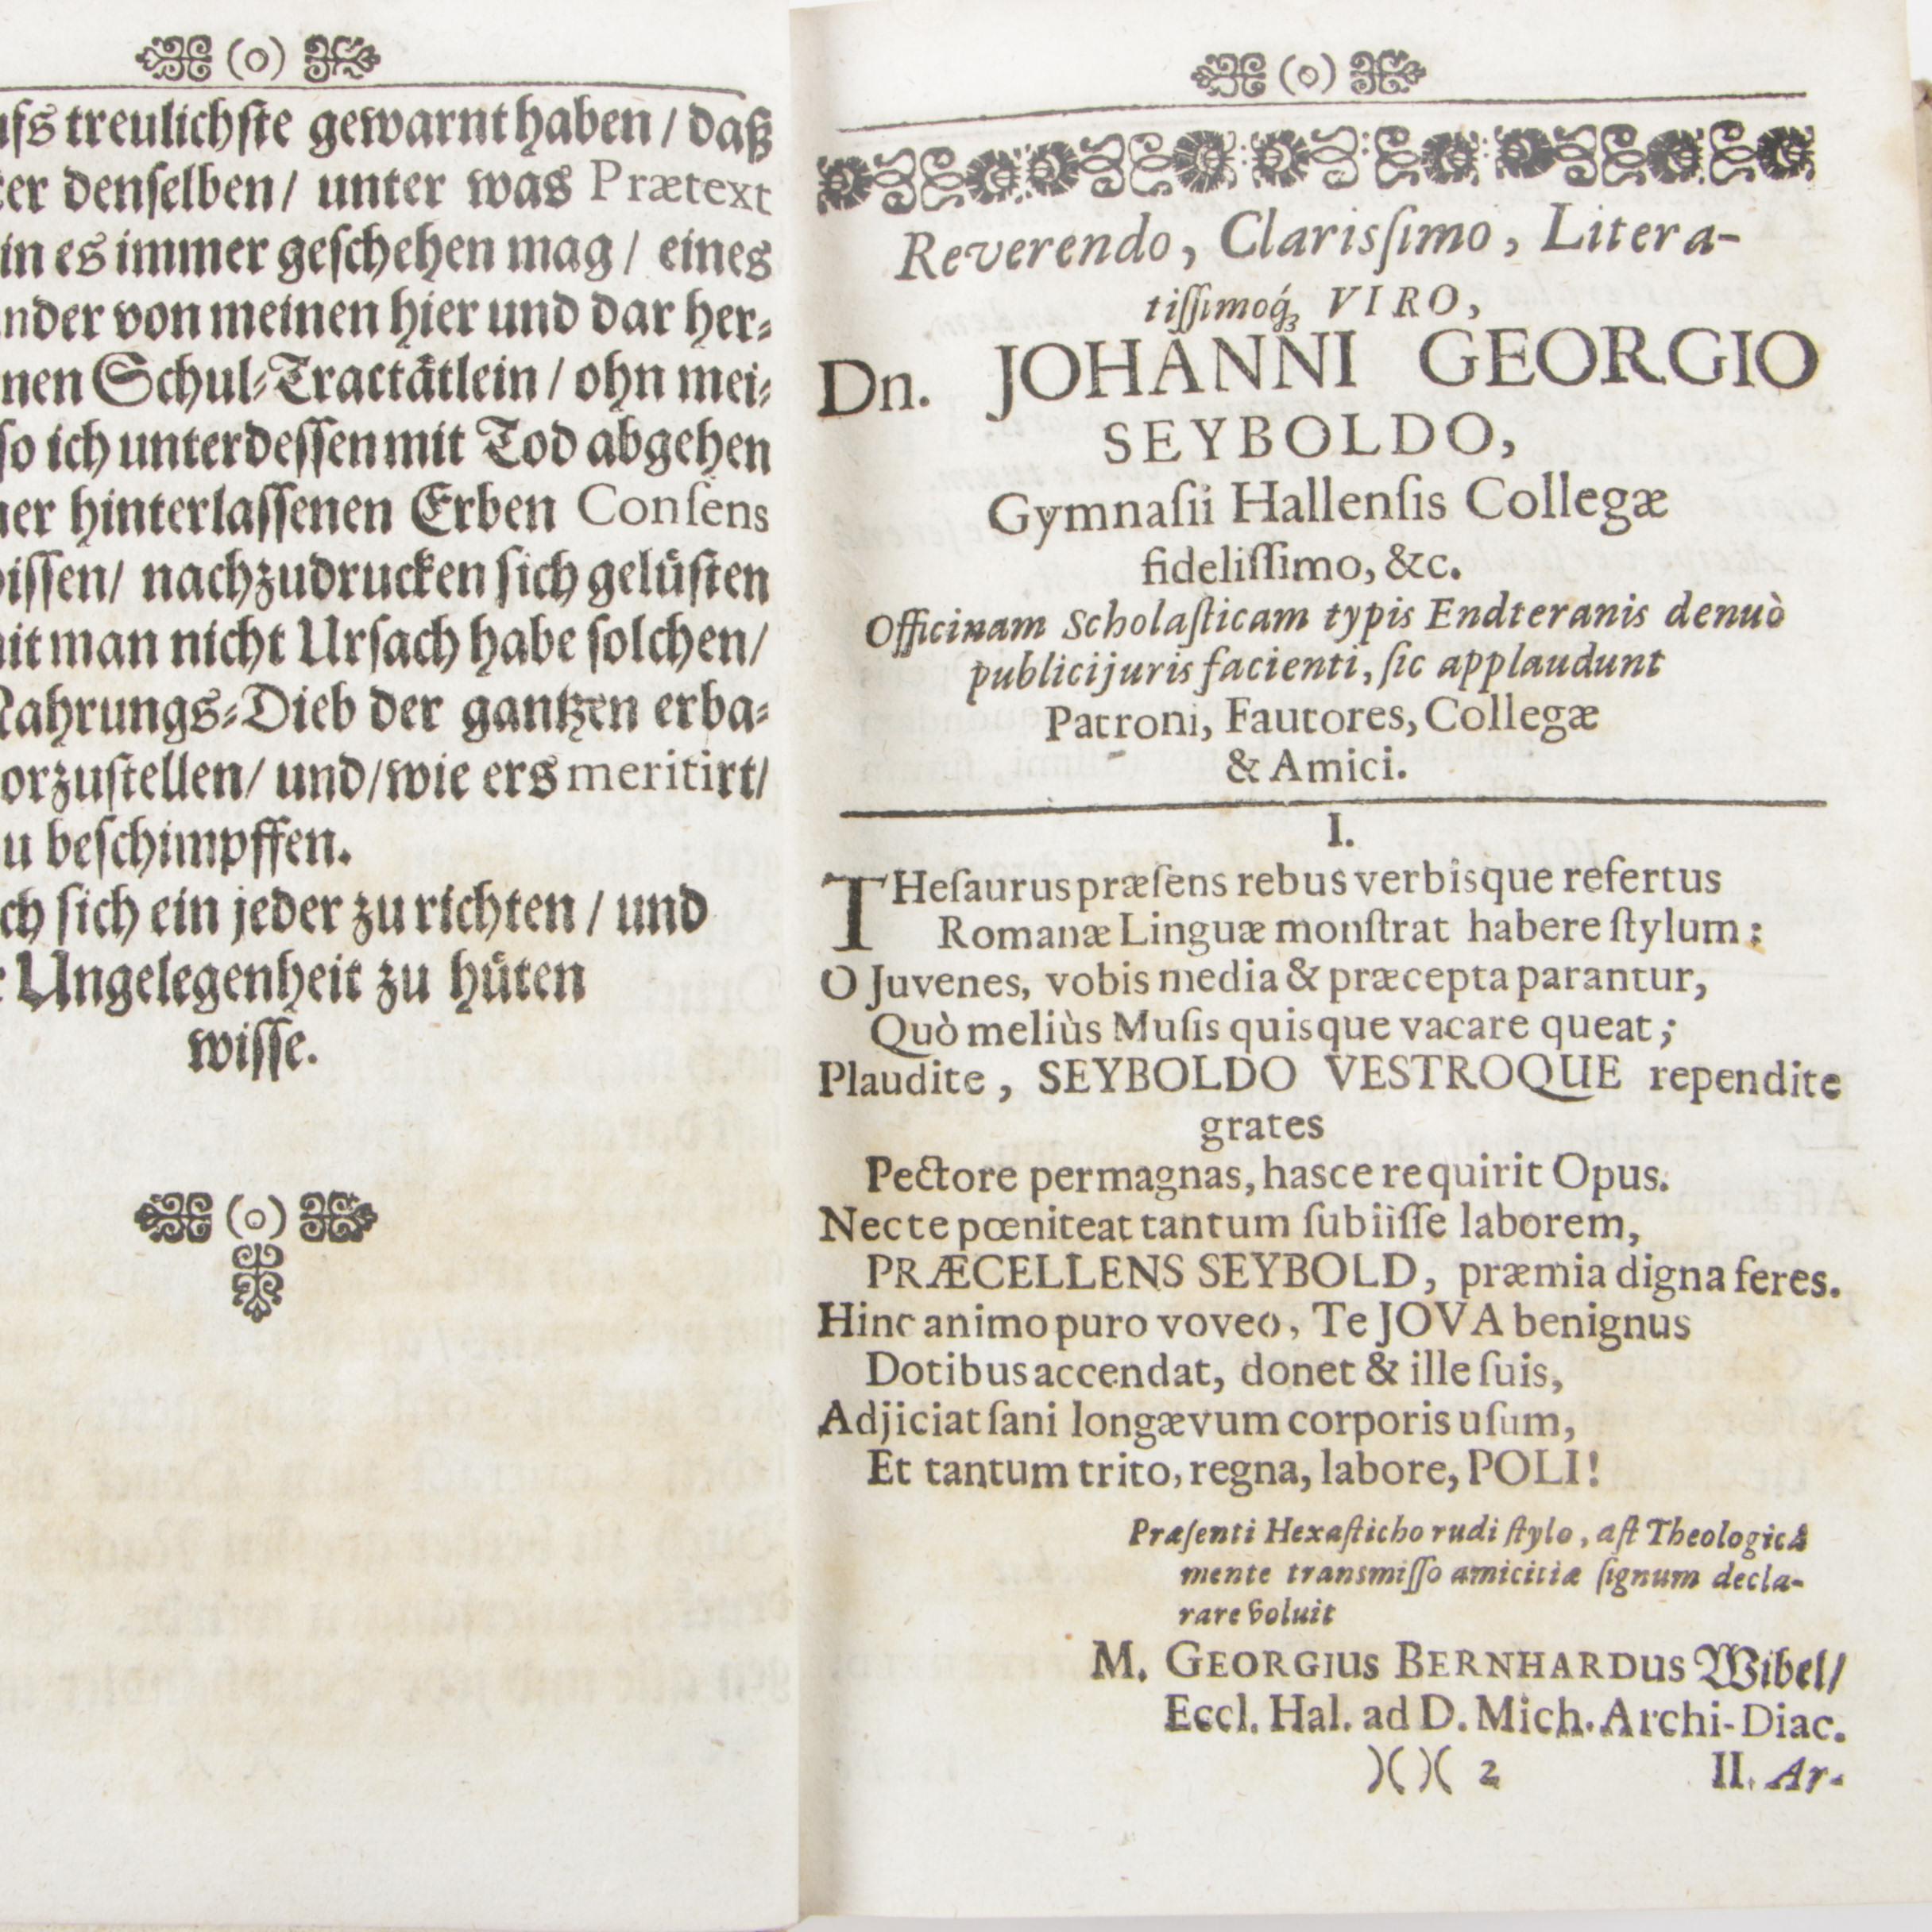 (o)
treulichſte gewarnt haben / daß
denſelben / unter was Prætext
es immer geſchehen mag / eines
von meinen hier und dar her⸗
Schul⸗Tractätlein / ohn mei⸗
ſo ich unterdeſſen mit Tod abgehen
hinterlaſſenen Erben Conſens
nachzudrucken ſich gelüſten
man nicht Urſach habe ſolchen /
Nahrungs⸗Dieb der gantzen erba⸗
und / wie ers meritirt /
beſchimpffen.
ſich ein jeder zu richten / und
Ungelegenheit zu hüten
wiſſe.
(o)
(o)
Reverendo, Clarisſimo, Litera-
tiſſimoq́; VIRO,
Dn. JOHANNI GEORGIO
SEYBOLDO,
Gymnaſii Hallenſis Collegæ
fideliſſimo, &c.
Officinam Scholaſticam typis Endteranis denuò
publici juris facienti, ſic applaudunt
Patroni, Fautores, Collegæ
& Amici.
I.
THeſaurus præſens rebus verbisque refertus
Romanæ Linguæ monſtrat habere ſtylum:
O Juvenes, vobis media & præcepta parantur,
Quò meliùs Muſis quisque vacare queat;
Plaudite, SEYBOLDO VESTROQUE rependite
grates
Pectore permagnas, hasce requirit Opus.
Nec te pœniteat tantum ſubiiſſe laborem,
PRÆCELLENS SEYBOLD, præmia digna feres.
Hinc animo puro voveo, Te JOVA benignus
Dotibus accendat, donet & ille ſuis,
Adjiciat ſani longævum corporis uſum,
Et tantum trito, regna, labore, POLI!
Præſenti Hexaſticho rudi ſtylo, aſt Theologicâ
mente transmiſſo amicitiæ ſignum decla-
rare voluit
M. GEORGIus BERNHARDus Wibel /
Eccl. Hal. ad D. Mich. Archi-Diac.
)( )( 2 II. Ar-